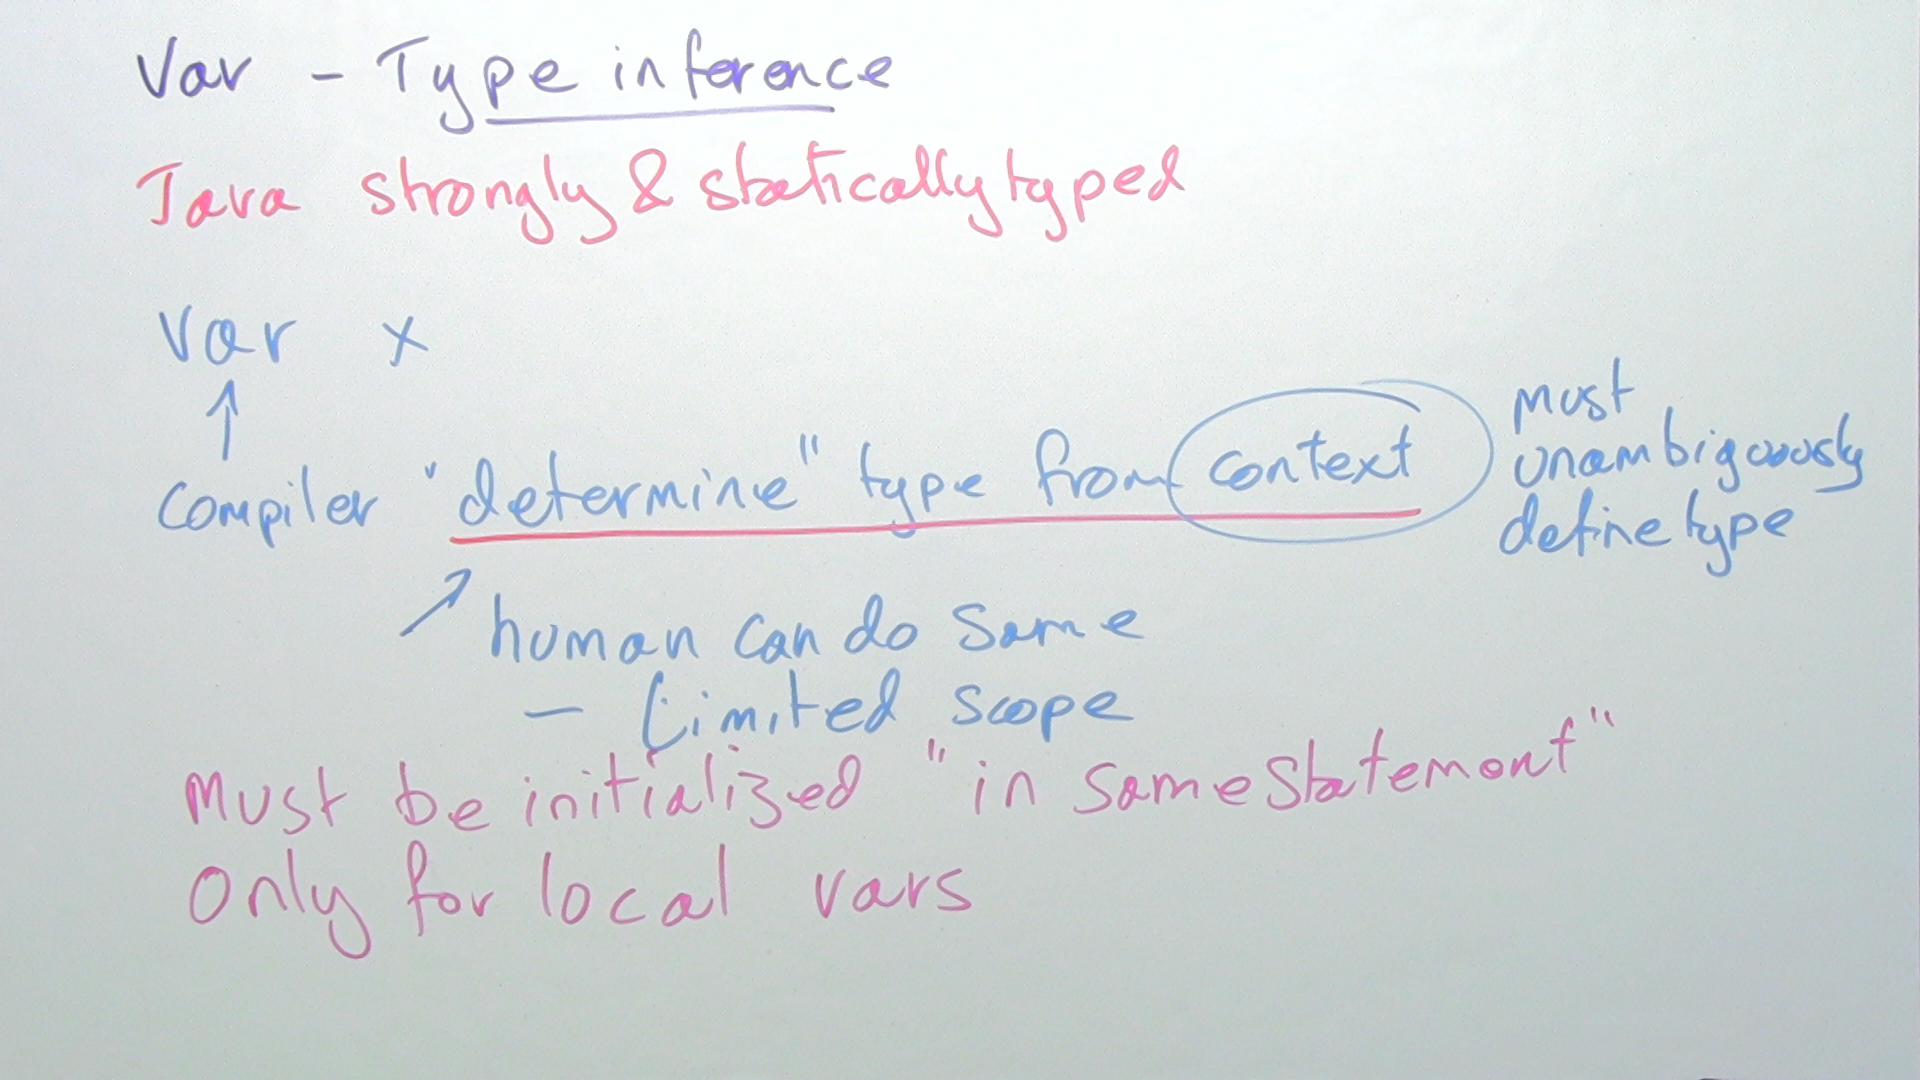 Var - Type inference
Java strongly & statically typed
var x
↑
compiler "determine" type from context
must
unambiguously
define type
human can do same
- Limited scope
Must be initialized "in same statement"
Only for local vars